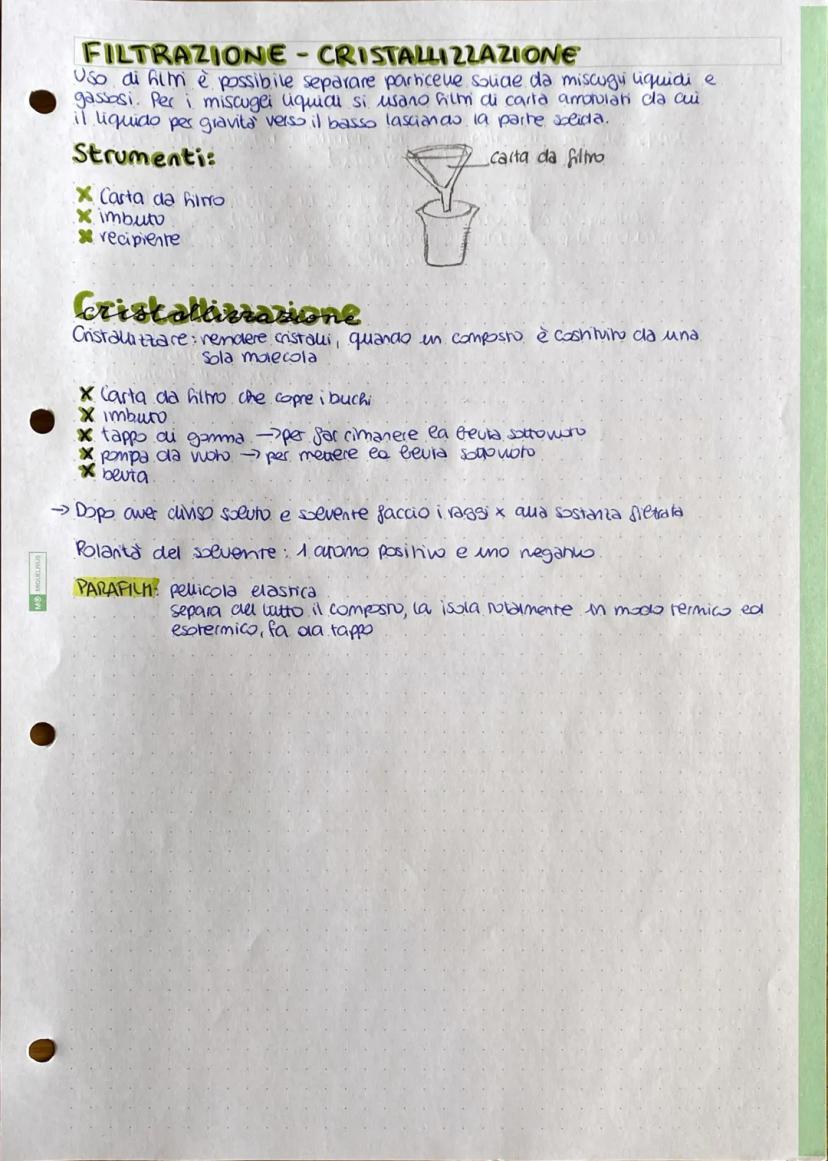 FILTRAZIONE - CRISTALLIZZAZIONE
Uso di filtri è possibile separare particelle solide da miscugli liquidi e
gassosi. Per i miscugli liquidi si usano filtri di carta arrotolati da cui
il liquido per gravità verso il basso lasciando la parte solida.
Strumenti:
carta da filtro
x Carta da filtro
x imbuto
x recipiente
Cristallizzazione
Cristallizzare: rendere cristalli, quando un composto è costituito da una
sola molecola
x Carta da filtro che copre i buchi
x imbuto
x tappo di gomma → per far rimanere la beuta sottovuoto
x pompa da vuoto → per mettere la beuta sottovuoto
x beuta
→ Dopo aver diviso soluto e solvente faccio i raggi x alla sostanza filtrata
Polarità del solvente: 1 atomo positivo e uno negativo
PARAFILM: pellicola elastica
separa del tutto il composto, la isola totalmente in modo termico ed
esotermico, fa da tappo